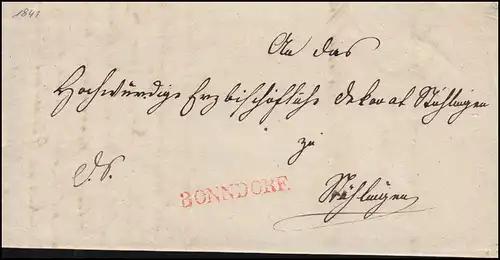 1841
An das
Hochwürdige Erzbischöfliche Dekanat Stühlingen
zu
d. S.
BONNDORF.
Stühlingen